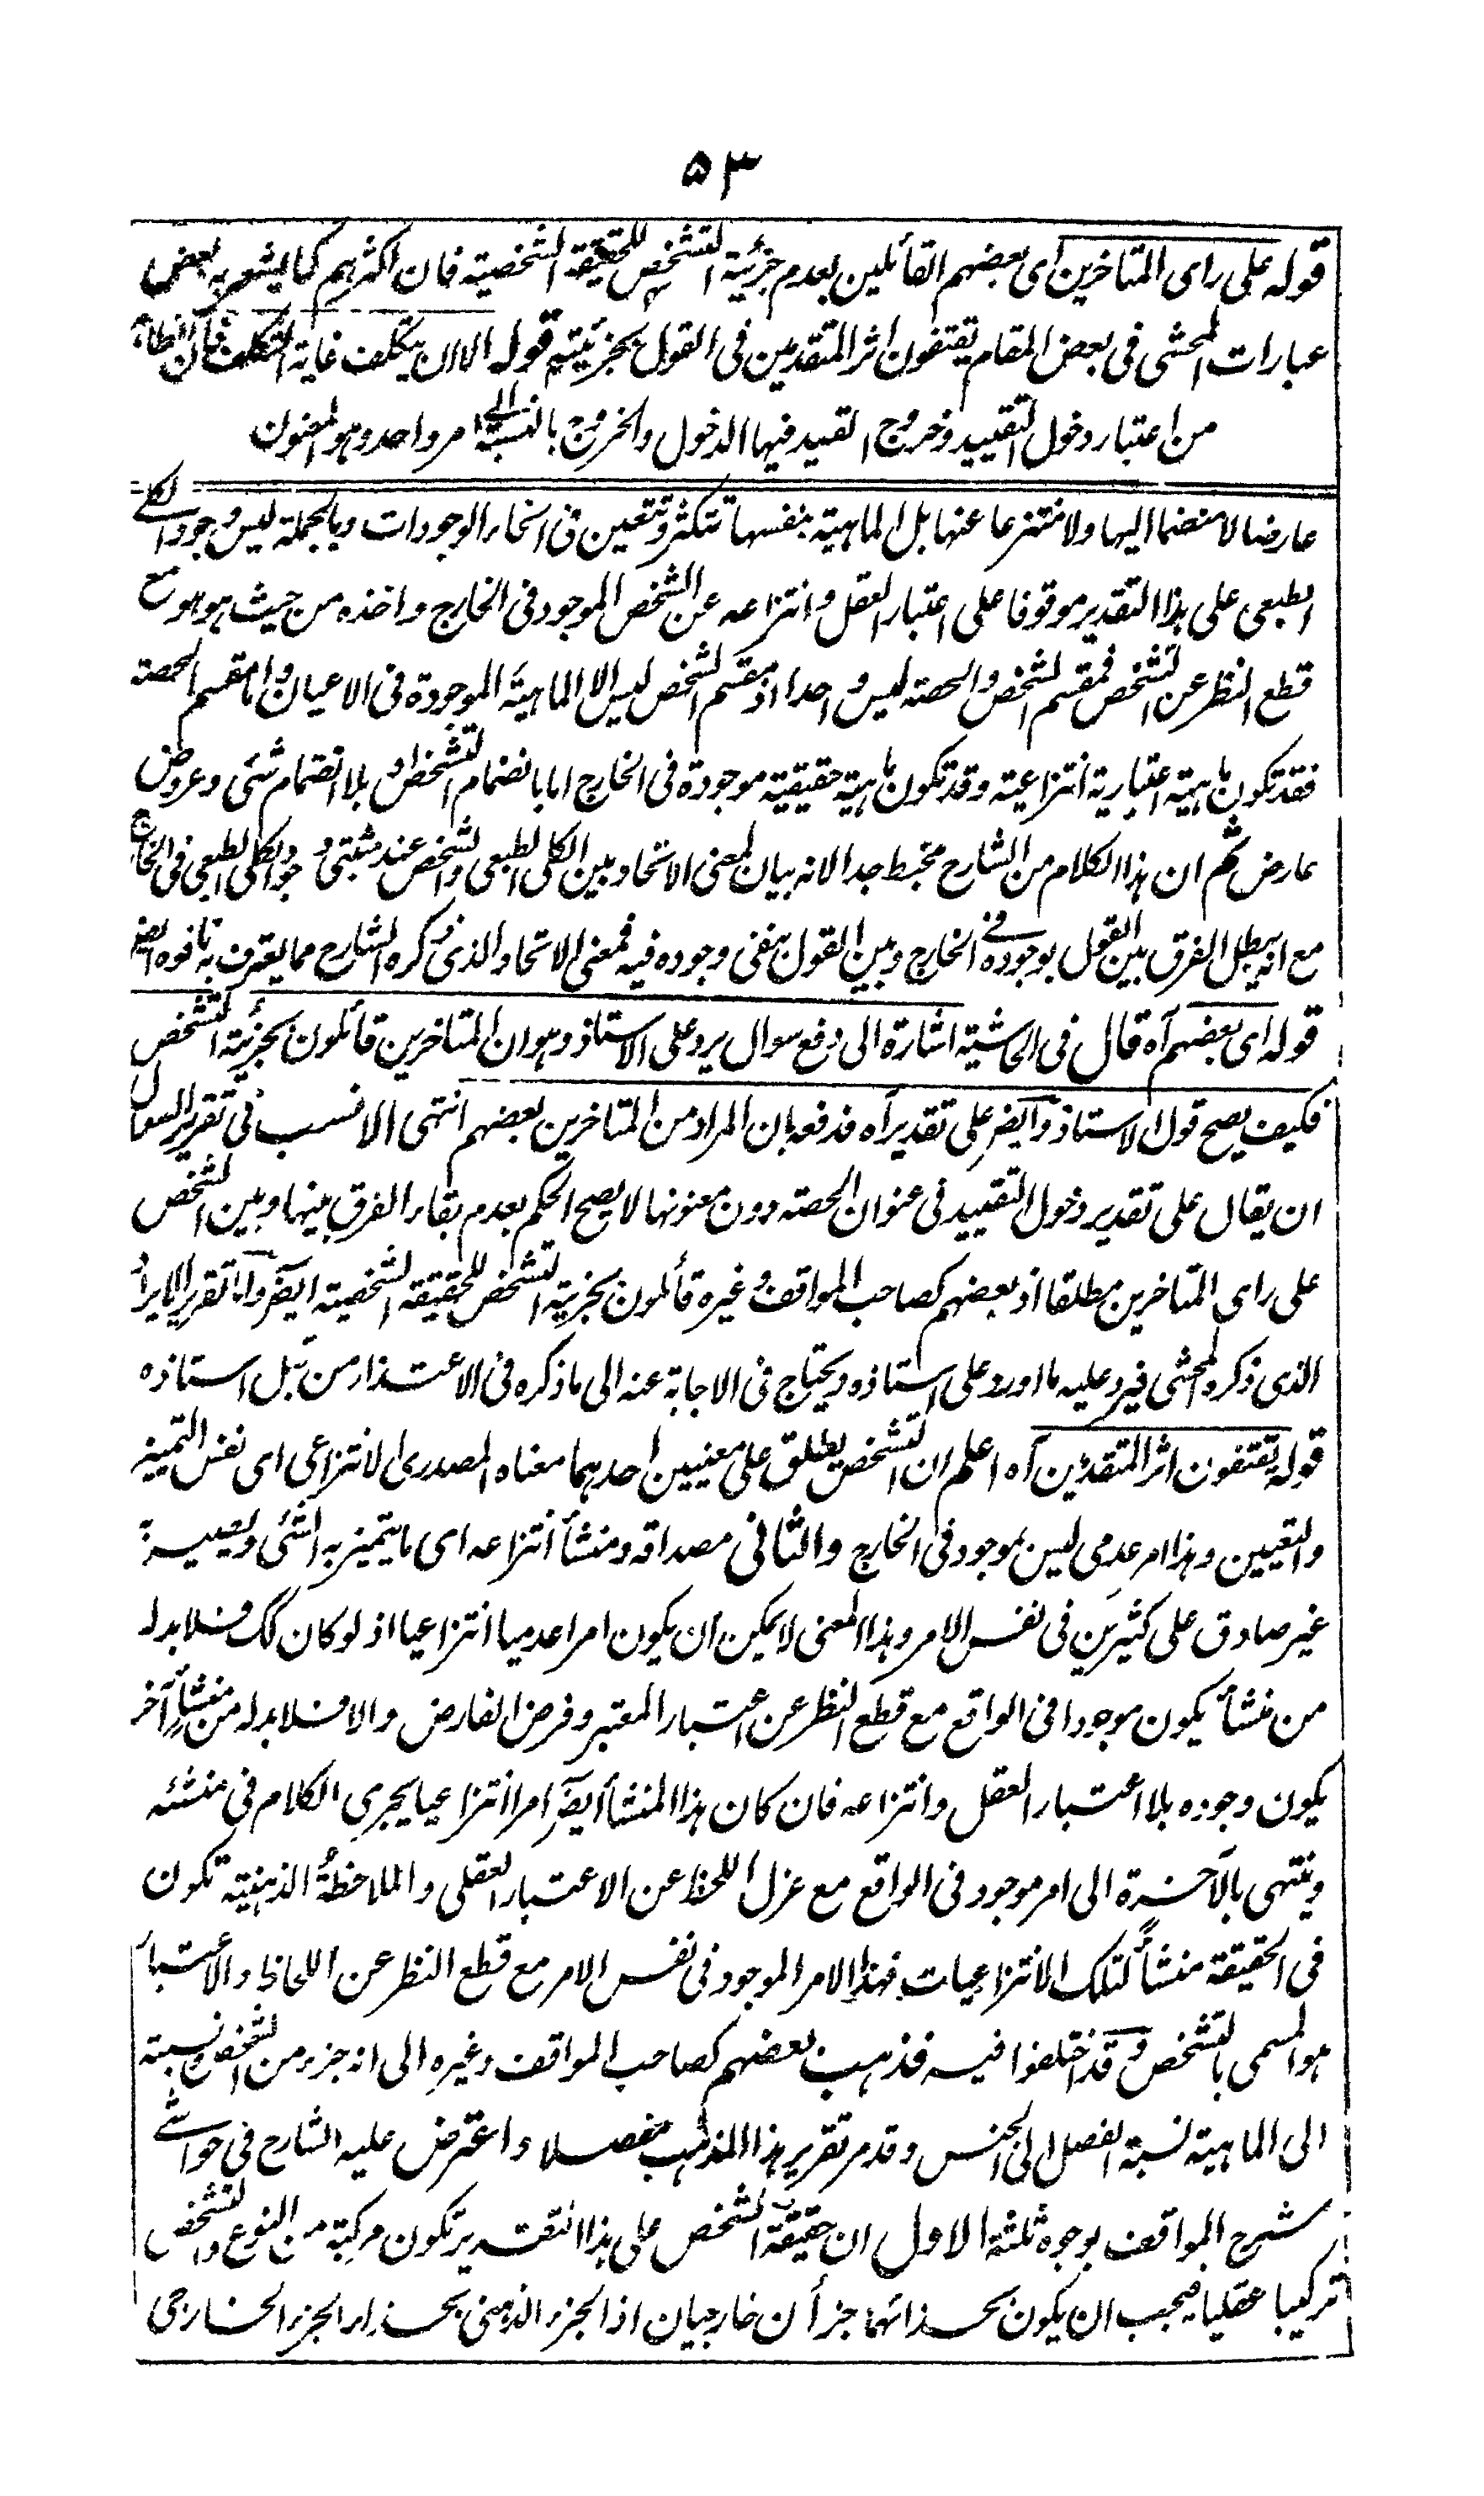 ۵۳
قوله على راى المتاخرين اى بعضهم القائلين بعدم جزئية التشخص للحقيقة الشخصية فان اكثرهم كما يشعر به بعض
عبارات المحشى فى بعض المقام يقتفون اثر المتقدمين فى القول بجزئيته قوله الا ان يتكلف غاية التكلف فان الظاهر
من اعتبار دخول التقييد وخروج القيد فيها الدخول والخروج بالنسبة الى امر واحد وهو المعنون
عارضا لا منضما اليها ولا منتزعا عنها بل الماهية بنفسها تتكثر وتتعين فى انحاء الوجودات وبالجملة ليس وجود الكلى
الطبعى على هذا التقدير موقوفا على اعتبار العقل وانتزاعه عن الشخص الموجود فى الخارج واخذه من حيث هو هو مع
قطع النظر عن التشخص فمقسم الشخص والحصة ليس واحدا اذ مقسم الشخص ليس الا الماهية الموجودة فى الاعيان واما مقسم الحصة
فقد تكون ماهية اعتبارية انتزاعية وقد تكون ماهية حقيقية موجودة فى الخارج اما بانضمام التشخص او بلا انضمام شئ وعروض
عارض ثم ان هذا الكلام من الشارح مخبط جدا لانه بيان لمعنى الاتحاد بين الكلى الطبعى والشخص عند مثبتى وجود الكلى الطبعى فى الخارج
مع انه يبطل الفرق بين القول بوجوده فى الخارج وبين القول بنفى وجوده فيه فمعنى الاتحاد الذى ذكره الشارح مما يعترف به نافوه ايضا
قوله اى بعضهم آه قال فى الحاشية اشارة الى دفع سوال يرد على الاستاذ وهو ان المتاخرين قائلون بجزئية التشخص
فكيف يصح قول الاستاذ وايضر على تقدير آه فدفعه بان المراد من المتاخرين بعضهم انتهى الانسب فى تقرير السوال
ان يقال على تقدير دخول التقييد فى عنوان الحصة دون معنونها لا يصح الحكم بعدم بقاء الفرق بينها وبين الشخص
على راى المتاخرين مطلقا اذ بعضهم كصاحب المواقف وغيره قائلون بجزئية التشخص للحقيقة الشخصية ايضر واما تقرير الايراد
الذى ذكره المحشى فيرد عليه ما اورد على استاذه ويحتاج فى الاجابة عنه الى ما ذكره فى الاعتذار من قبل استاذه
قوله يقتفون اثر المتقدمين آه اعلم ان التشخص يطلق على معنيين احدهما معناه المصدرى الانتزاعى اى نفس التميز
والتعيين وهذا امر عدمى ليس بموجود فى الخارج والثانى مصداقه ومنشأ انتزاعه اى ما يتميز به الشئ ويصيره
غير صادق على كثيرين فى نفس الامر وهذا المعنى لا يمكن ان يكون امرا عدميا انتزاعيا اذ لو كان كك فلا بد له
من منشأ يكون موجودا فى الواقع مع قطع النظر عن اعتبار المعتبر وفرض الفارض والا فلا بد له من منشأ آخر
يكون وجوده بلا اعتبار العقل وانتزاعه فان كان هذا المنشأ ايضر امرا انتزاعيا يجرى الكلام فى منشئه
وينتهى بالآخرة الى امر موجود فى الواقع مع عزل اللحظ عن الاعتبار العقلى والملاحظة الذهنية تكون
فى الحقيقة منشأ لتلك الانتزاعيات فهذا الامر الموجود فى نفس الامر مع قطع النظر عن اللحاظ والاعتبار
هو المسمى بالتشخص وقد اختلفوا فيه فذهب بعضهم كصاحب المواقف وغيره الى انه جزء من الشخص ونسبته
الى الماهية نسبة الفصل الى الجنس وقد مر تقرير هذا المذهب مفصلا واعترض عليه الشارح فى حواشى
شرح المواقف بوجوه ثلثة الاول ان حقيقة الشخص على هذا التقدير تكون مركبة من النوع والتشخص
تركيبا عقليا فيجب ان يكون بحذائهما جزأن خارجيان اذ الجزء الذهنى بحذاء الجزء الخارجى